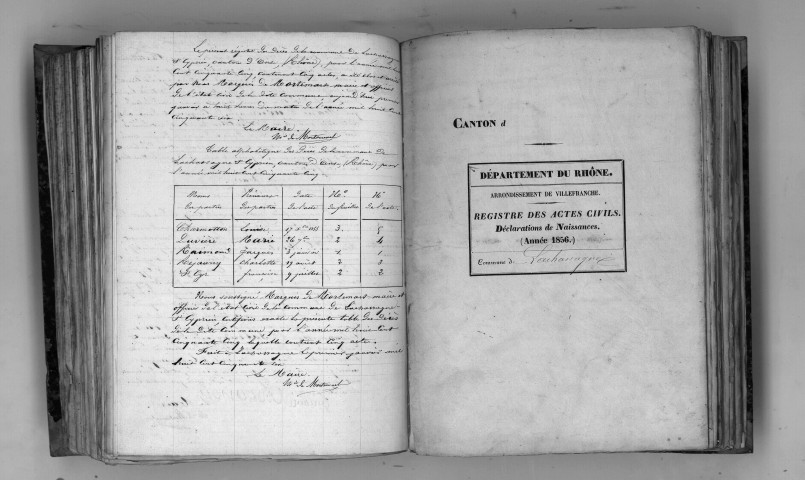 Le présent registre des Décès de la commune de Lachassagne
St Cyprien, canton d'Anse, (Rhône), pour l'année mil huit
cent cinquante cinq contenant cinq actes, a été clos et arrêté
par Nous Marquis de Mortemart maire et officier
de l'état civil de la dite commune aujourd'hui premier
janvier à huit heures du matin de l'année mil huit cent
cinquante six
Le Maire
Mis de Mortemart
Table alphabétique des Décès de la commune de
Lachassagne St Cyprien, canton d'Anse, (Rhône), pour
l'année mil huit cent cinquante cinq
Noms Prénoms Date No No
Des parties Des parties De l'acte Du feuillet De l'acte
Charmetton Louise 3 5
Marie 2 4
Raimond Jacques 5 janvier 1 1
Charlotte 19 2
St Cyr françoise 9 juillet 2 2
Nous soussigné Marquis de Mortemart maire et
officier de l'état civil de la commune de Lachassagne
St Cyprien certifions la présente table des Décès
de la dite commune pour l'année mil huit cent
cinquante cinq laquelle contient cinq actes.
Fait à Lachassagne le premier janvier mil
huit cent cinquante six
Le Maire
Mis de Mortemart
CANTON d
DÉPARTEMENT DU RHÔNE.
ARRONDISSEMENT DE VILLEFRANCHE.
REGISTRE DES ACTES CIVILS.
Déclarations de Naissances.
(Année 1856.)
Commune de Lachassagne